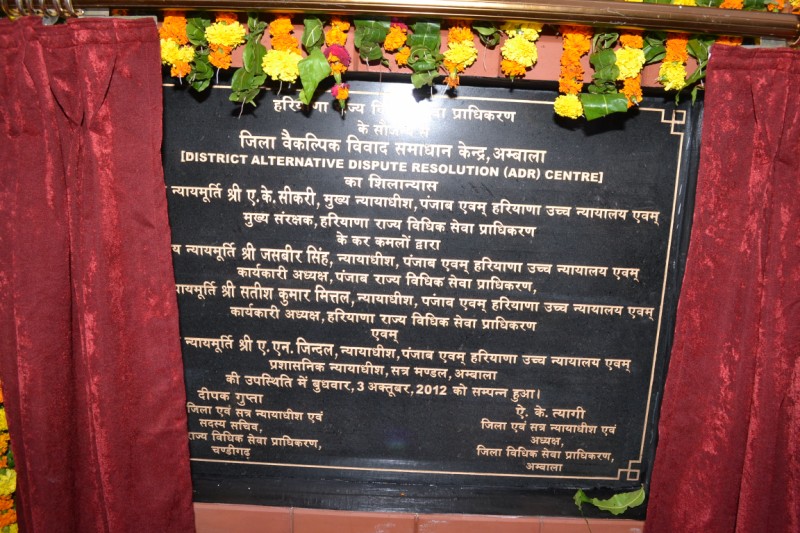 हरियाणा राज्य प्राधिकरण
के सौजन्य से
जिला वैकल्पिक विवाद समाधान केन्द्र, अम्बाला
[DISTRICT ALTERNATIVE DISPUTE RESOLUTION (ADR) CENTRE]
का शिलान्यास
न्यायमूर्ति श्री ए.के. सीकरी, मुख्य न्यायाधीश, पंजाब एवम् हरियाणा उच्च न्यायालय एवम्
मुख्य संरक्षक, हरियाणा राज्य विधिक सेवा प्राधिकरण
के कर कमलों द्वारा
न्यायमूर्ति श्री जसबीर सिंह, न्यायाधीश, पंजाब एवम् हरियाणा उच्च न्यायालय एवम्
कार्यकारी अध्यक्ष, पंजाब राज्य विधिक सेवा प्राधिकरण,
न्यायमूर्ति श्री सतीश कुमार मित्तल, न्यायाधीश, पंजाब एवम् हरियाणा उच्च न्यायालय एवम्
कार्यकारी अध्यक्ष, हरियाणा राज्य विधिक सेवा प्राधिकरण
एवम्
न्यायमूर्ति श्री ए. एन. जिन्दल, न्यायाधीश, पंजाब एवम् हरियाणा उच्च न्यायालय एवम्
प्रशासनिक न्यायाधीश, सत्र मण्डल, अम्बाला
की उपस्थिति में बुधवार, 3 अक्तूबर, 2012 को सम्पन्न हुआ।
दीपक गुप्ता
जिला एवं सत्र न्यायाधीश एवं
सदस्य सचिव,
राज्य विधिक सेवा प्राधिकरण,
चण्डीगढ़
ऐ. के. त्यागी
जिला एवं सत्र न्यायाधीश एवं
अध्यक्ष,
जिला विधिक सेवा प्राधिकरण,
अम्बाला